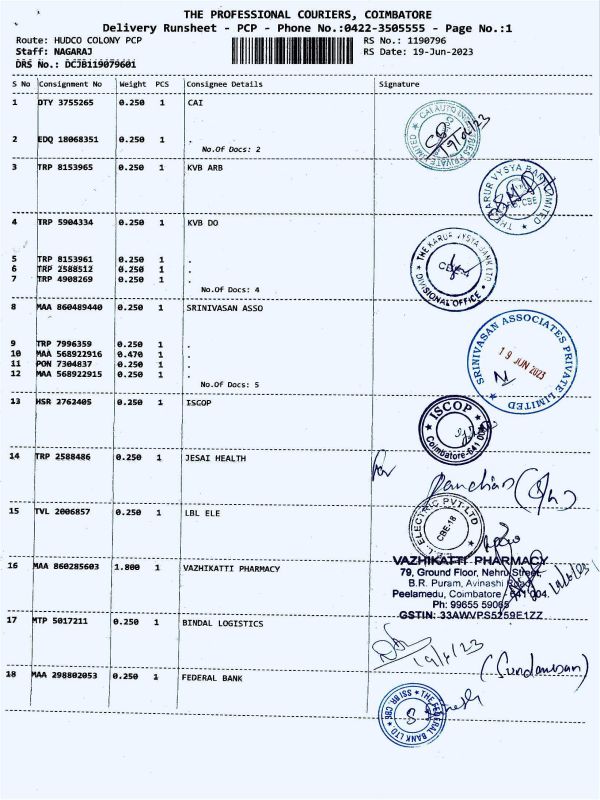 THE PROFESSIONAL COURIERS, COIMBATORE
Delivery Runsheet - PCP - Phone No.:0422-3505555 - Page No.:1
Route: HUDCO COLONY PCP RS No.: 1190796
Staff: NAGARAJ RS Date: 19-Jun-2023
DRS No.: DCJB119079601
S No Consignment No Weight PCS Consignee Details Signature
1 DTY 3755265 0.250 1 CAI
2 EDQ 18068351 0.250 1 .
No.Of Docs: 2
3 TRP 8153965 0.250 1 KVB ARB
4 TRP 5904334 0.250 1 KVB DO
5 TRP 8153961 0.250 1 .
6 TRP 2588512 0.250 1 .
7 TRP 4908269 0.250 1 .
No.Of Docs: 4
THE KARUR VYSYA BANK LTD
DIVISIONAL OFFICE
8 MAA 860489440 0.250 1 SRINIVASAN ASSO
9 TRP 7996359 0.250 1 .
10 MAA 568922916 0.470 1 .
11 PON 7304837 0.250 1 .
12 MAA 568922915 0.250 1 .
No.Of Docs: 5
SRINIVASAN ASSOCIATES PRIVATE LIMITED
19 JUN 2023
13 HSR 2762405 0.250 1 ISCOP
ISCOP
14 TRP 2588486 0.250 1 JESAI HEALTH
for
15 TVL 2006857 0.250 1 LBL ELE
CBE-18
16 MAA 860285603 1.800 1 VAZHIKATTI PHARMACY
VAZHIKATTI PHARMACY
79, Ground Floor, Nehru Street,
B.R. Puram, Avinashi Road,
Peelamedu, Coimbatore - 641 004.
Ph: 99655 59065
GSTIN: 33AWVPS5259E1ZZ
17 MTP 5017211 0.250 1 BINDAL LOGISTICS
18 MAA 298802053 0.250 1 FEDERAL BANK
THE FEDERAL BANK LTD.